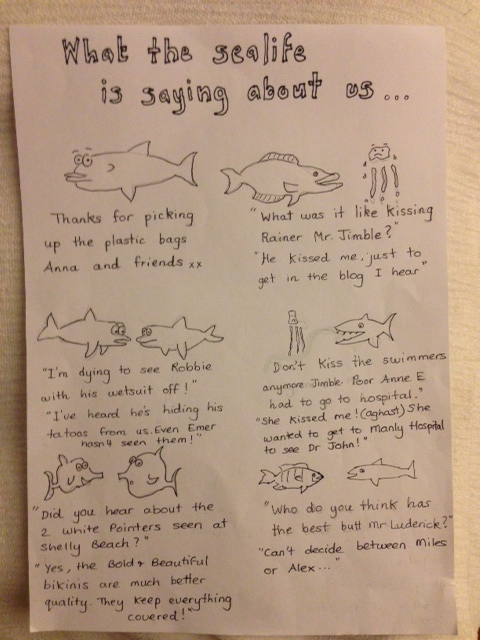 What the sealife
is saying about us...
Thanks for picking
up the plastic bags
Anna and friends xx
"What was it like kissing
Rainer Mr. Jimble?"
"He kissed me, just to
get in the blog I hear"
"I'm dying to see Robbie
with his wetsuit off!"
"I've heard he's hiding his
tatoos from us. Even Emer
hasn't seen them!"
Don't kiss the swimmers
anymore Jimble. Poor Anne E
had to go to hospital."
"She kissed me! (aghast) She
wanted to get to Manly Hospital
to see Dr John!"
"Did you hear about the
2 White Pointers seen at
Shelly Beach?"
"Yes, the Bold & Beautiful
bikinis are much better
quality. They keep everything
covered!"
"Who do you think has
the best butt Mr Luderick?"
"Can't decide between Miles
or Alex..."